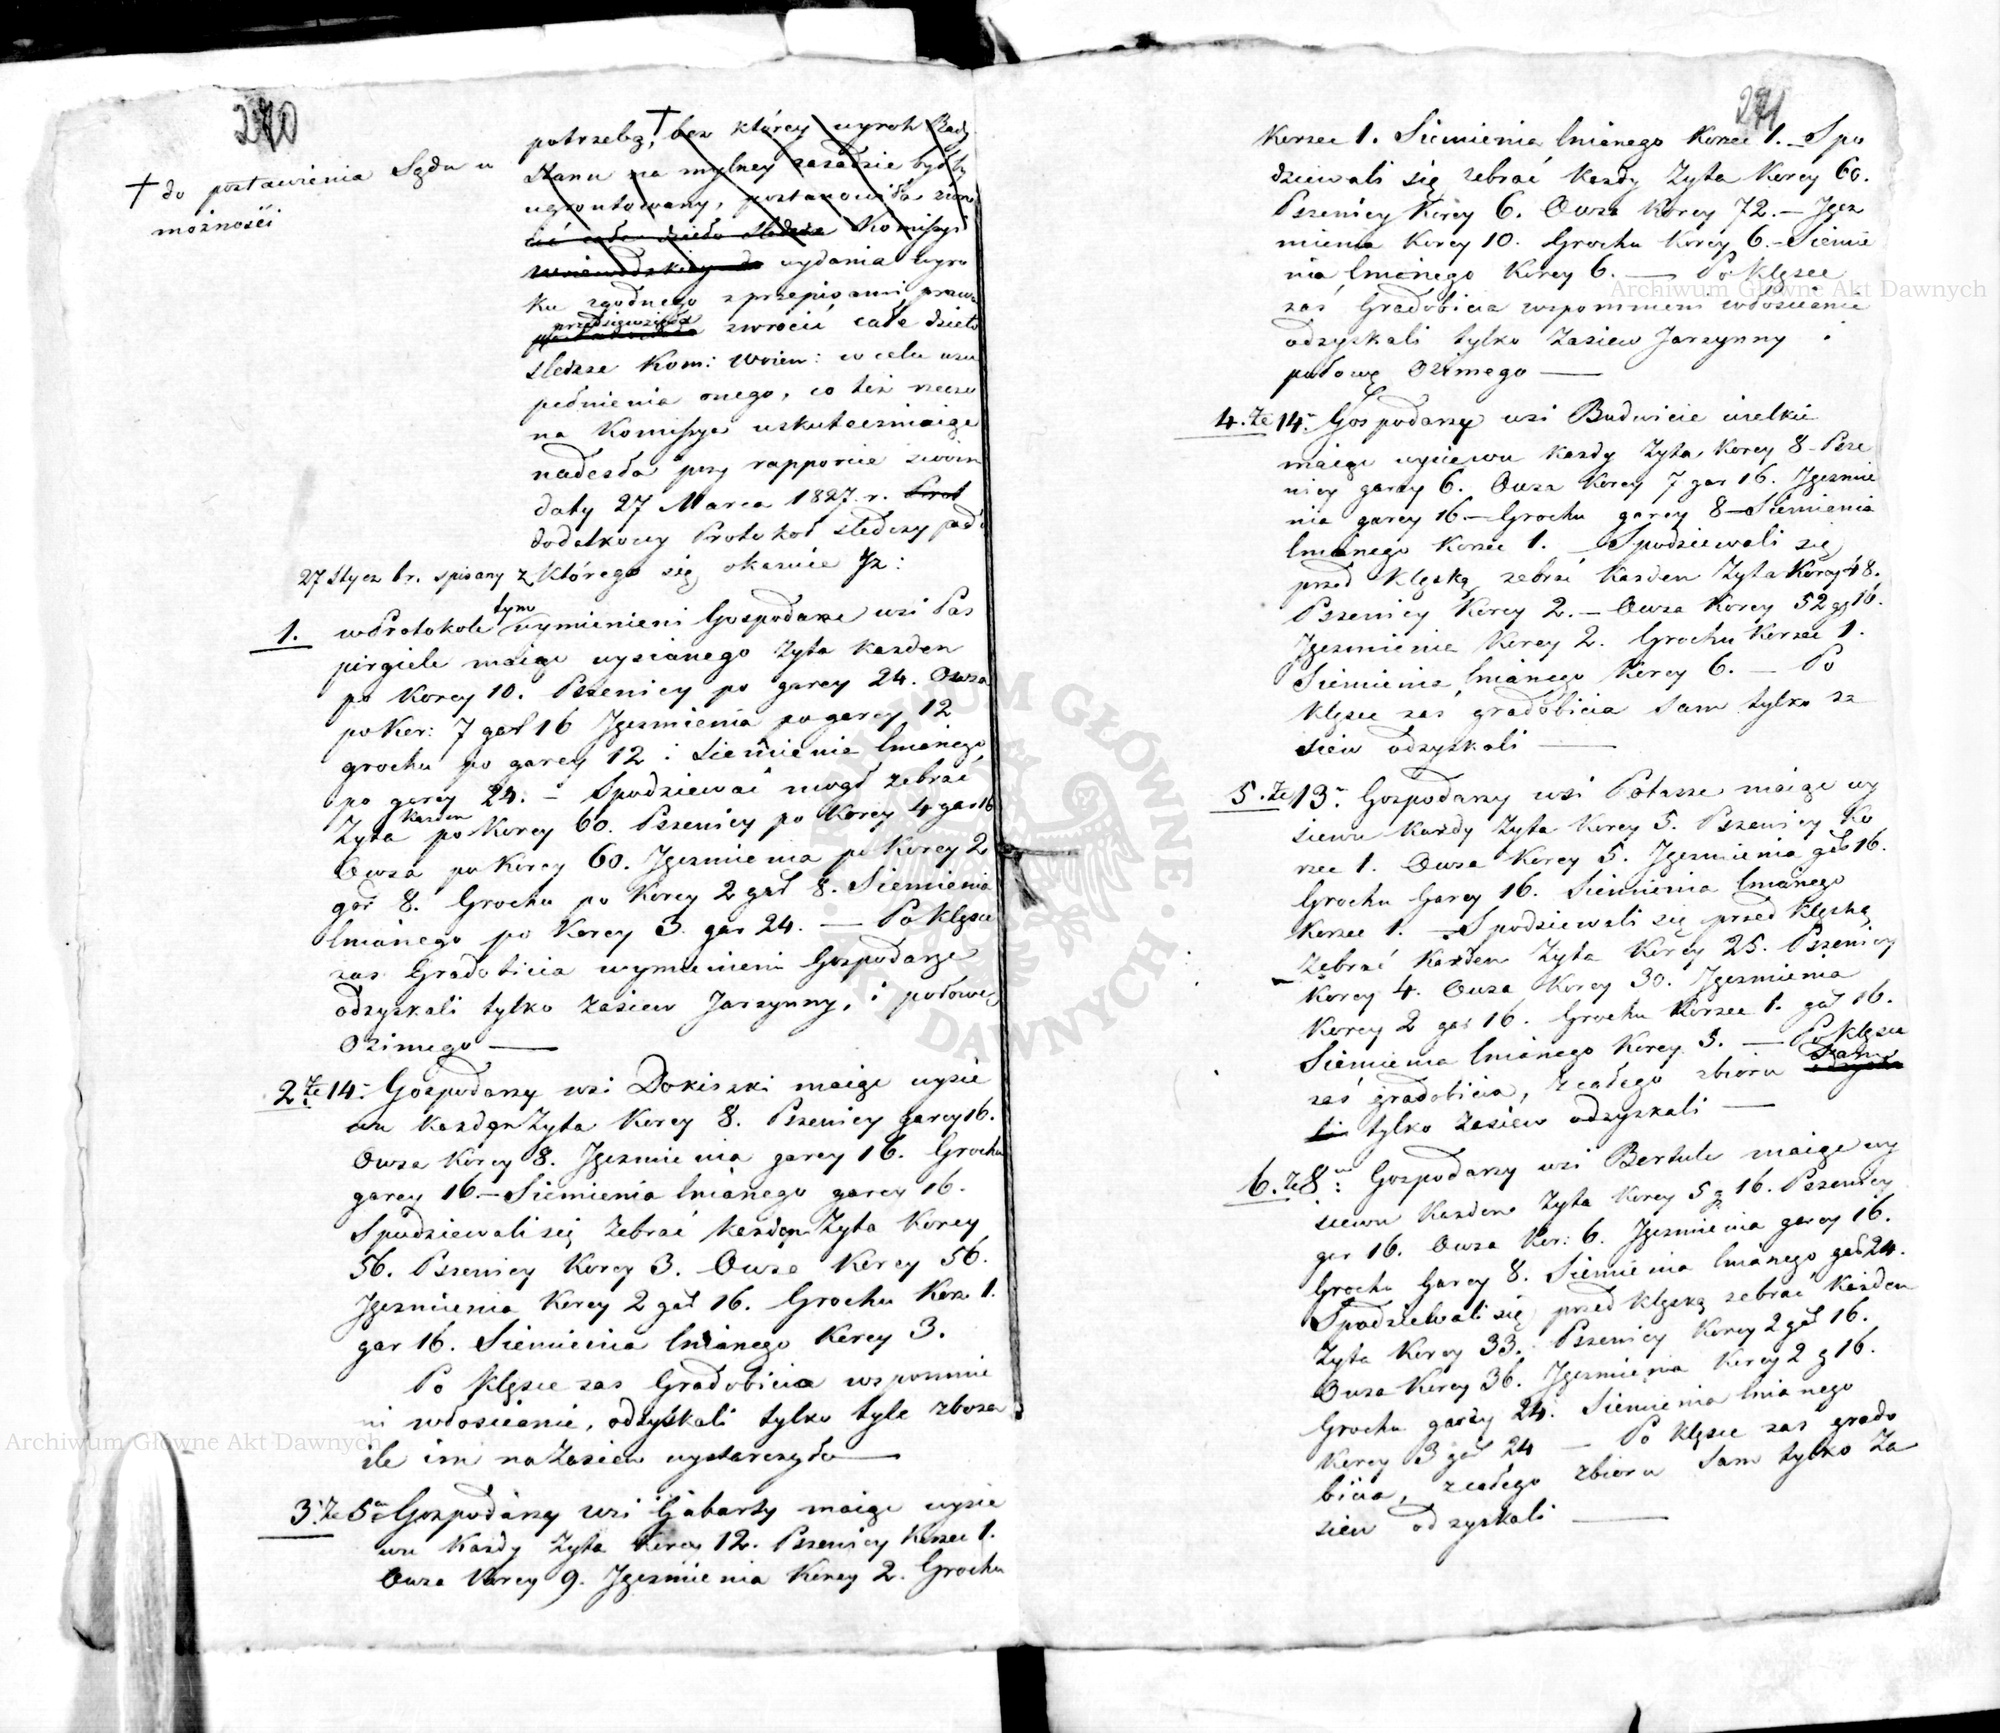 270
potrzebą, bez którey wyrok Rady
Stanu na mylney zasadzie byłby
ugruntowany, postanowiła zwró
cić całe dzieło śledcze Komissyi
Woiewodzkiey do wydania wyro
ku zgodnego z przepisami prawa
przedsięwzięła
zwrócić całe dzieło
śledcze Kom: Woiew: w celu uzu
pełnienia onego, co też rzeczo
na Kommissya uskuteczniaiąc
nadesła przy rapporcie swoim
daty 27 Marca 1827. r. Prot
dodatkowy Protokoł śledczy pod
27 Stycz br. spisany z którego się okazuie Iż:
† do postawienia Sądu w
możności
1. w Protokole tym wymienieni Gospodarze wsi Pas
pirgiele maiąc wysianego Zyta każden
po Korcy 10. Pszenicy po garcy 24. Owsa
po Kor: 7 gar 16 Jęczmienia po garcy 12
grochu po garcy 12 i Siemienia lnianego
po garcy 24. – Spodziewać mogł zebrać
każden
Zyta po Korcy 60. Pszenicy po Korcy 4 gar 16
Owsa po Korcy 60. Jęczmienia po Korcy 2
gar 8. Grochu po Korcy 2 gar 8. Siemienia
lnianego po Korcy 3. gar 24. — Po Klęsce
zas Gradobicia wymienieni Gospodarze
odzyskali tylko zasiew Jarzynny, i połowę
Ozimego —
2. Ze 14. Gospodarzy wsi Dokiszki maiąc wysie
wu każden Zyta Korcy 8. Pszenicy garcy 16.
Owsa Korcy 8. Jęczmienia garcy 16. Grochu
garcy 16 – Siemienia lnianego garcy 16.
Spodziewali się zebrać każden Zyta Korcy
56. Pszenicy Korcy 3. Owsa Korcy 56.
Jęczmienia Korcy 2 gar 16. Grochu Korz 1.
gar 16. Siemienia lnianego Korcy 3.
Po Klęsce zas Gradobicia wspomnie
ni włościanie, odzyskali tylko tyle zboza
ile im na zasiew wystarczyło —
3. Ze 5u Gospodarzy wsi Gabarty maiąc wysie
wu Każdy Zyta Korcy 12. Pszenicy Korzec 1.
Owsa Korcy 9. Jęczmienia Korcy 2. Grochu
271
Korzec 1. Siemienia lnianego Korzec 1. – Spo
dziewali się zebrać Każdy Zyta Korcy 60.
Pszenicy Korcy 6. Owsa Korcy 72. – Jęcz
mienia Korcy 10. Grochu Korcy 6. – Siemie
nia lnianego Korcy 6. — Po Klęsce
zaś Gradobicia wspomnieni włościanie
odzyskali tylko zasiew Jarzynny i
połowę Ozimego —
4. Ze 14. Gospodarzy wsi Budwicie wielkie
maiąc wysiewu każdy Zyta, Korcy 8 – Psze
nicy garcy 6. Owsa Korcy 7 gar 16. Jęczmie
nia garcy 16 – Grochu garcy 8 – Siemienia
lnianego Korzec 1. – Spodziewali się
przed Klęską zebrać Każden Zyta Korcy 48.
Pszenicy Korcy 2. – Owsa Korcy 52 g 16.
Jęczmienia Korcy 2. Grochu Korzec 1.
Siemienia lnianego Korcy 6. — Po
Klęsce zas gradobicia sam tylko za
siew odzyskali —
5. Ze 13. Gospodarzy wsi Potasze maiąc wy
siewu Każdy Zyta Korcy 5. Pszenicy Ko
rzec 1. Owsa Korcy 5. Jęczmienia gar 16.
Grochu Garcy 16. Siemienia lnianego
Korzec 1. – Spodziewali się przed Klęską
zebrać Każden Zyta Korcy 25. Pszenicy
Korcy 4. Owsa Korcy 30. Jęczmienia
Korcy 2 gar 16. Grochu Korzec 1. gar 16.
Siemienia lnianego Korcy 3. — Po Klęsce
zaś gradobicia, z całego zbioru sam
tylko zasiew odzyskali —
6. Ze 8u Gospodarzy wsi Bertule maiąc wy
siewu Każden Zyta Korcy 5 g 16. Pszenicy
gar 16. Owsa Kor: 6. Jęczmienia garcy 16.
Grochu Garcy 8. Siemienia lnianego gar 24.
Spodziewali się przed Klęską zebrać Każden
Zyta Korcy 33. Pszenicy Korcy 2 gar 16.
Owsa Korcy 36. Jęczmienia Korcy 2 g 16.
Grochu garcy 24. Siemienia lnianego
Korcy 3 gar 24 – Po Klęsce zas grado
bicia, z całego zbioru sam tylko Za
siew odzyskali —
Archiwum Główne Akt Dawnych
Archiwum Główne Akt Dawnych
ARCHIWUM GŁÓWNE AKT DAWNYCH